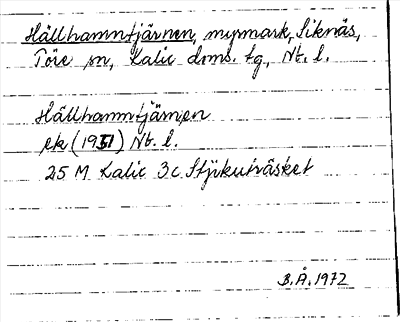 Hällhamntjärnen, myrmark, Siknäs,
Töre sn, Kalix doms. tg, Nb. l.
Hällhamntjärnen
ek (1951) Nb. l.
25 M Kalix 3c Stjikuträsket
B.Å. 1972